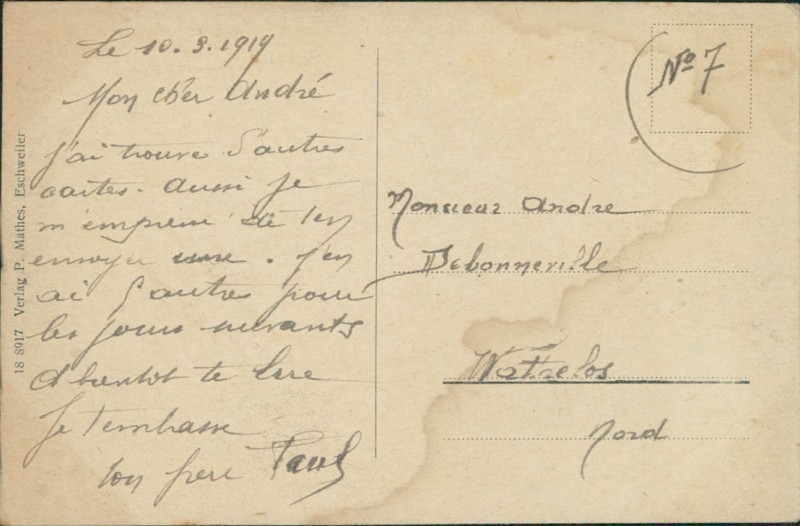 Le 10.3.1919
Mon cher André
j'ai trouve d'autres
cartes. Aussi je
m'empresse de t'en
envoyer une. J'en
ai d'autres pour
les jours suivants
A bientot te lire
Je t'embrasse
ton frere Paul
No 7
Monsieur Andre
Debonneville
Wattrelos
Nord
18 8917 Verlag P. Mathes, Eschweiler